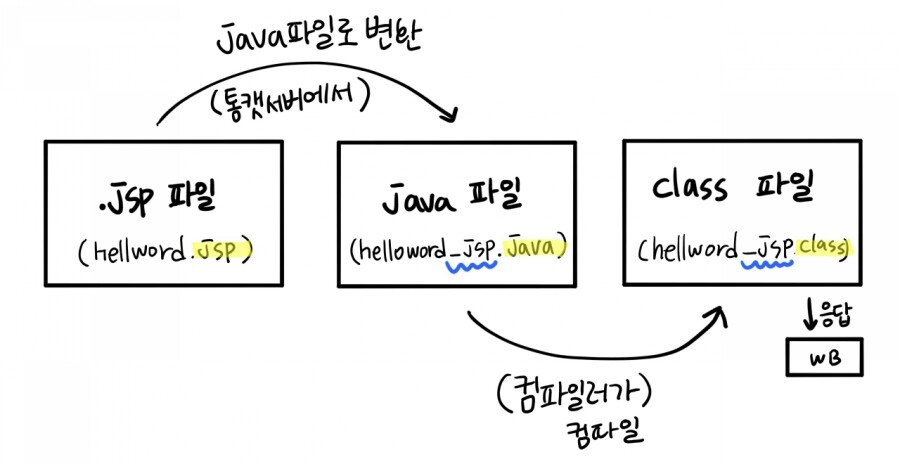 Java파일로 변환
(톰캣서버에서)
.Jsp 파일
(hellword.Jsp)
Java 파일
(helloword_Jsp.Java)
class 파일
(hellword_Jsp.class)
↓응답
WB
(컴파일러가)
컴파일